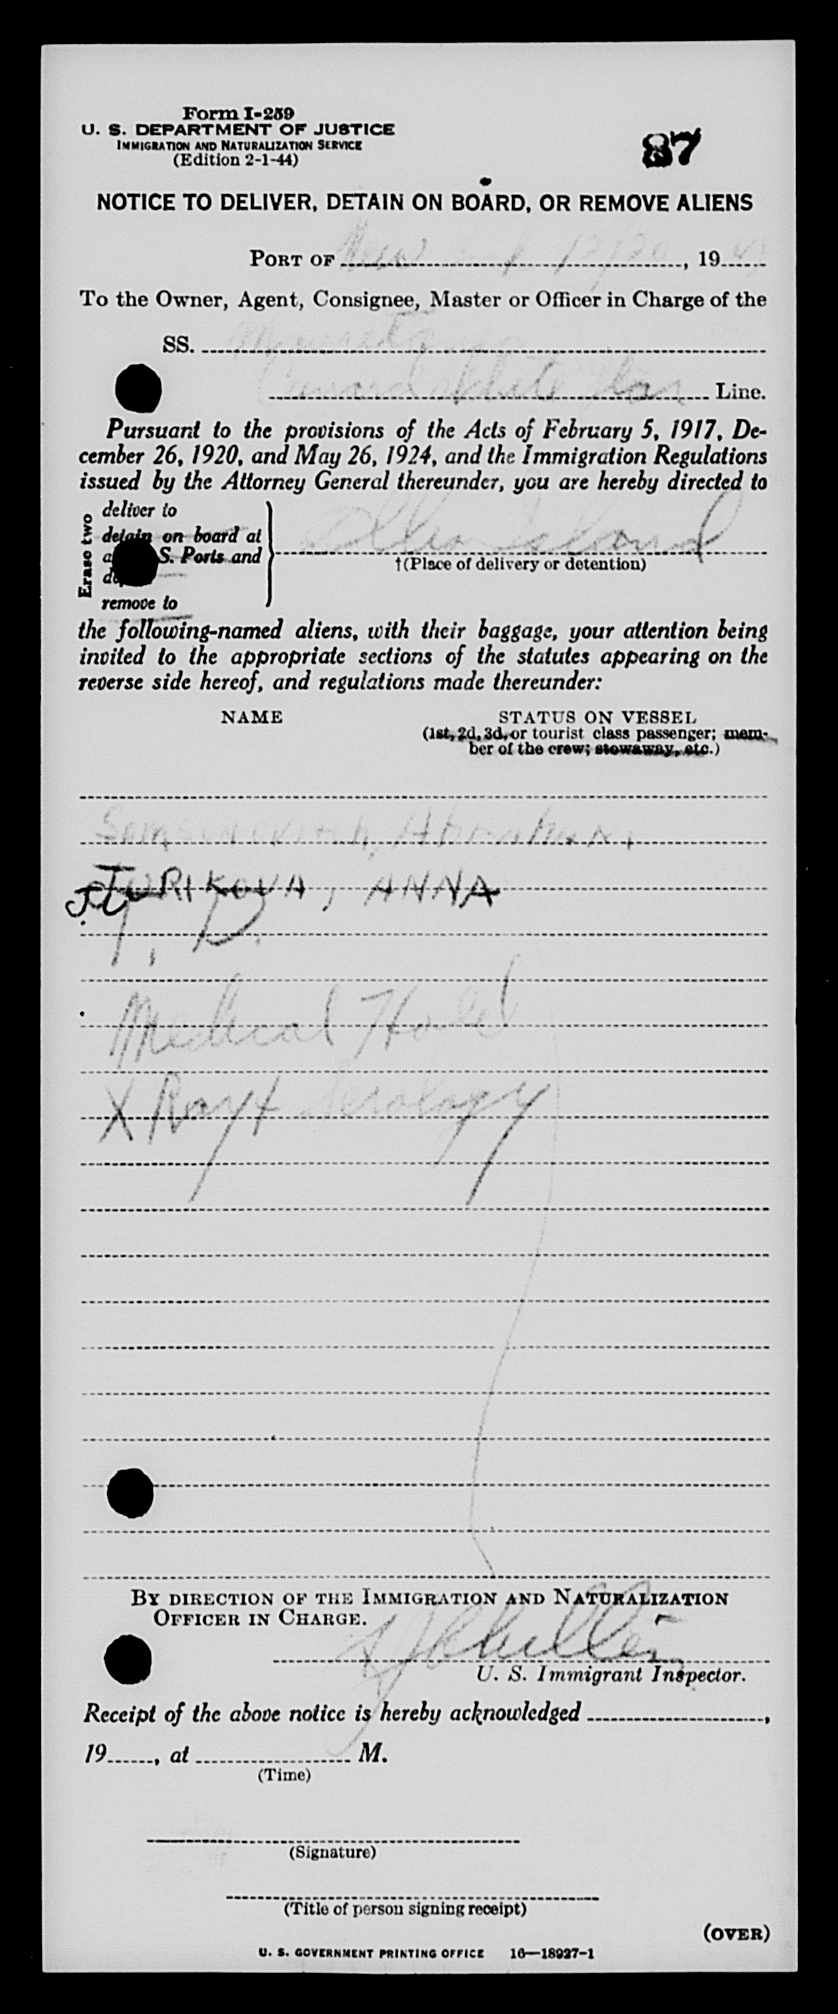 Form I-259
U. S. DEPARTMENT OF JUSTICE
IMMIGRATION AND NATURALIZATION SERVICE
(Edition 2-1-44)
87
NOTICE TO DELIVER, DETAIN ON BOARD, OR REMOVE ALIENS
PORT OF New York 12/20, 19
To the Owner, Agent, Consignee, Master or Officer in Charge of the
SS. Mauretania
Cunard White Star Line.
Pursuant to the provisions of the Acts of February 5, 1917, De-
cember 26, 1920, and May 26, 1924, and the Immigration Regulations
issued by the Attorney General thereunder, you are hereby directed to
Erase two
deliver to
detain on board at
S. Ports and
remove to
Ellis Island
†(Place of delivery or detention)
the following-named aliens, with their baggage, your attention being
invited to the appropriate sections of the statutes appearing on the
reverse side hereof, and regulations made thereunder:
NAME STATUS ON VESSEL
(1st, 2d, 3d, or tourist class passenger; mem-
ber of the crew; stowaway, etc.)
JURIKOVA, ANNA
T. D.
Medical Hold
X Ray + Serology
BY DIRECTION OF THE IMMIGRATION AND NATURALIZATION
OFFICER IN CHARGE.
U. S. Immigrant Inspector.
Receipt of the above notice is hereby acknowledged ,
19 , at M.
(Time)
(Signature)
(Title of person signing receipt)
(OVER)
U. S. GOVERNMENT PRINTING OFFICE 16—18927-1